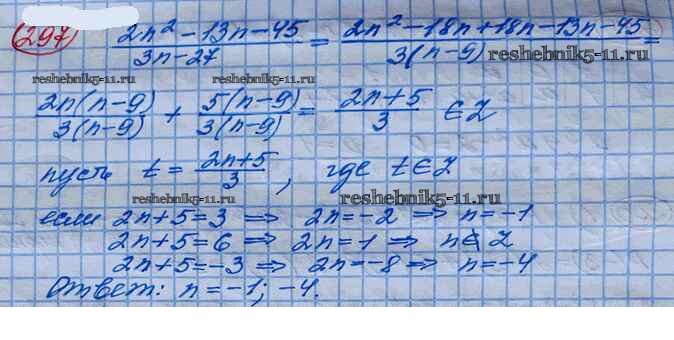 (297) (2n² - 13n - 45)/(3n - 27) = (2n² - 18n + 18n - 13n - 45)/(3(n - 9)) =
reshebnik5-11.ru reshebnik5-11.ru
2n(n-9)/3(n-9) + 5(n-9)/3(n-9) = (2n+5)/3 ∈ Z
пусть t = (2n+5)/3, где t ∈ Z
reshebnik5-11.ru reshebnik5-11.ru
если 2n+5=3 ⇒ 2n=-2 ⇒ n=-1
2n+5=6 ⇒ 2n=1 ⇒ n∉Z
2n+5=-3 ⇒ 2n=-8 ⇒ n=-4
Ответ: n=-1; -4.